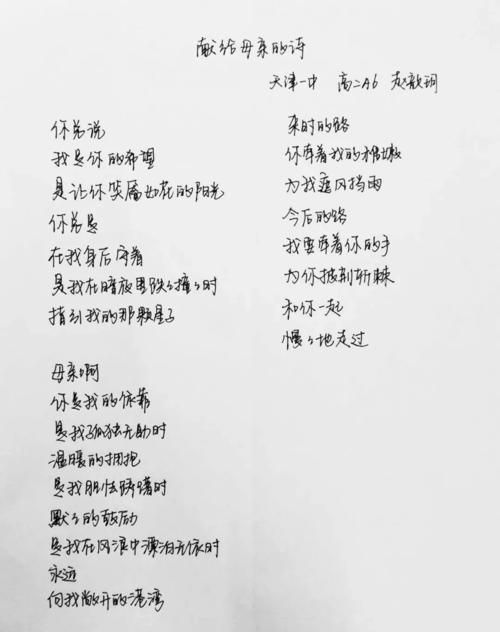 献给母亲的诗
天津一中 高二A6 赵歆玥
你总说
我是你的希望
是让你笑靥如花的阳光
你总是
在我身后守着
是我在暗夜里跌跌撞撞时
指引我的那颗星子
母亲啊
你是我的依靠
是我孤独无助时
温暖的拥抱
是我胆怯踌躇时
默默的鼓励
是我在风浪中漂泊无依时
永远
向我敞开的港湾
来时的路
你牵着我的
为我遮风挡雨
今后的路
我要牵着你的手
为你披荆斩棘
和你一起
慢慢地走过